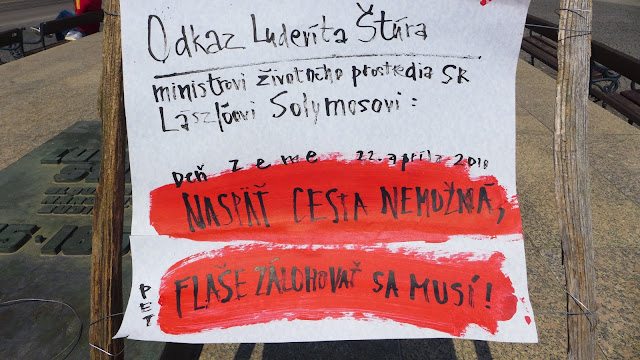 Odkaz Ludevíta Štúra
ministrovi životného prostredia SR
Lászlóovi Solymosovi:
Deň zeme 22. apríla 2018
NASPÄŤ CESTA NEMOŽNÁ,
PET FLAŠE ZÁLOHOVAŤ SA MUSÍ!